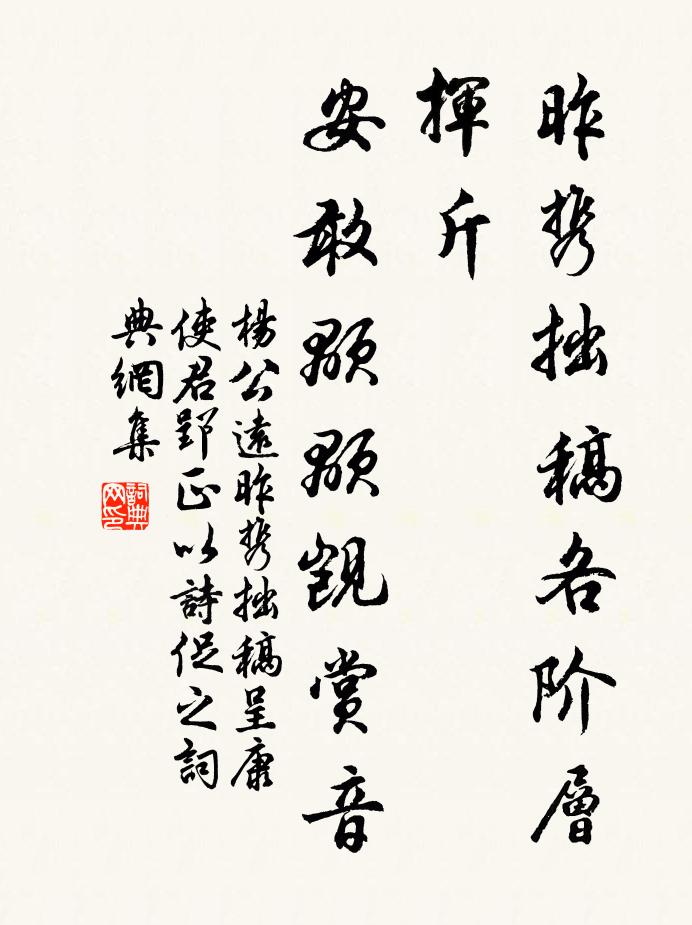 昨携拙稿各阶層
揮斤
安敢顒顒覬賞音
楊公遠昨携拙稿呈康
使君郢正以詩促之詞
典網集
詞典
网印